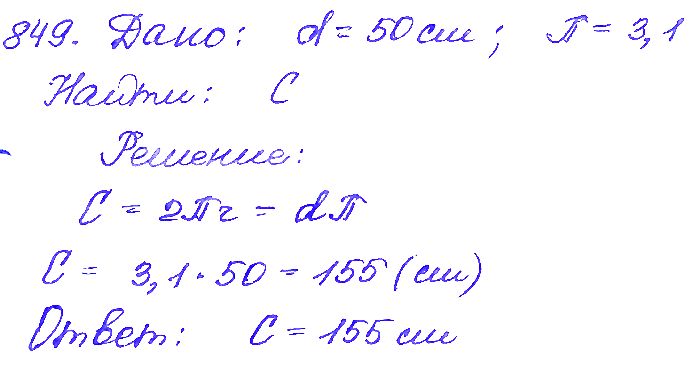 849. Дано: d = 50 см; П = 3,1
Найти: С
Решение:
С = 2Пr = dП
С = 3,1 · 50 = 155 (см)
Ответ: С = 155 см